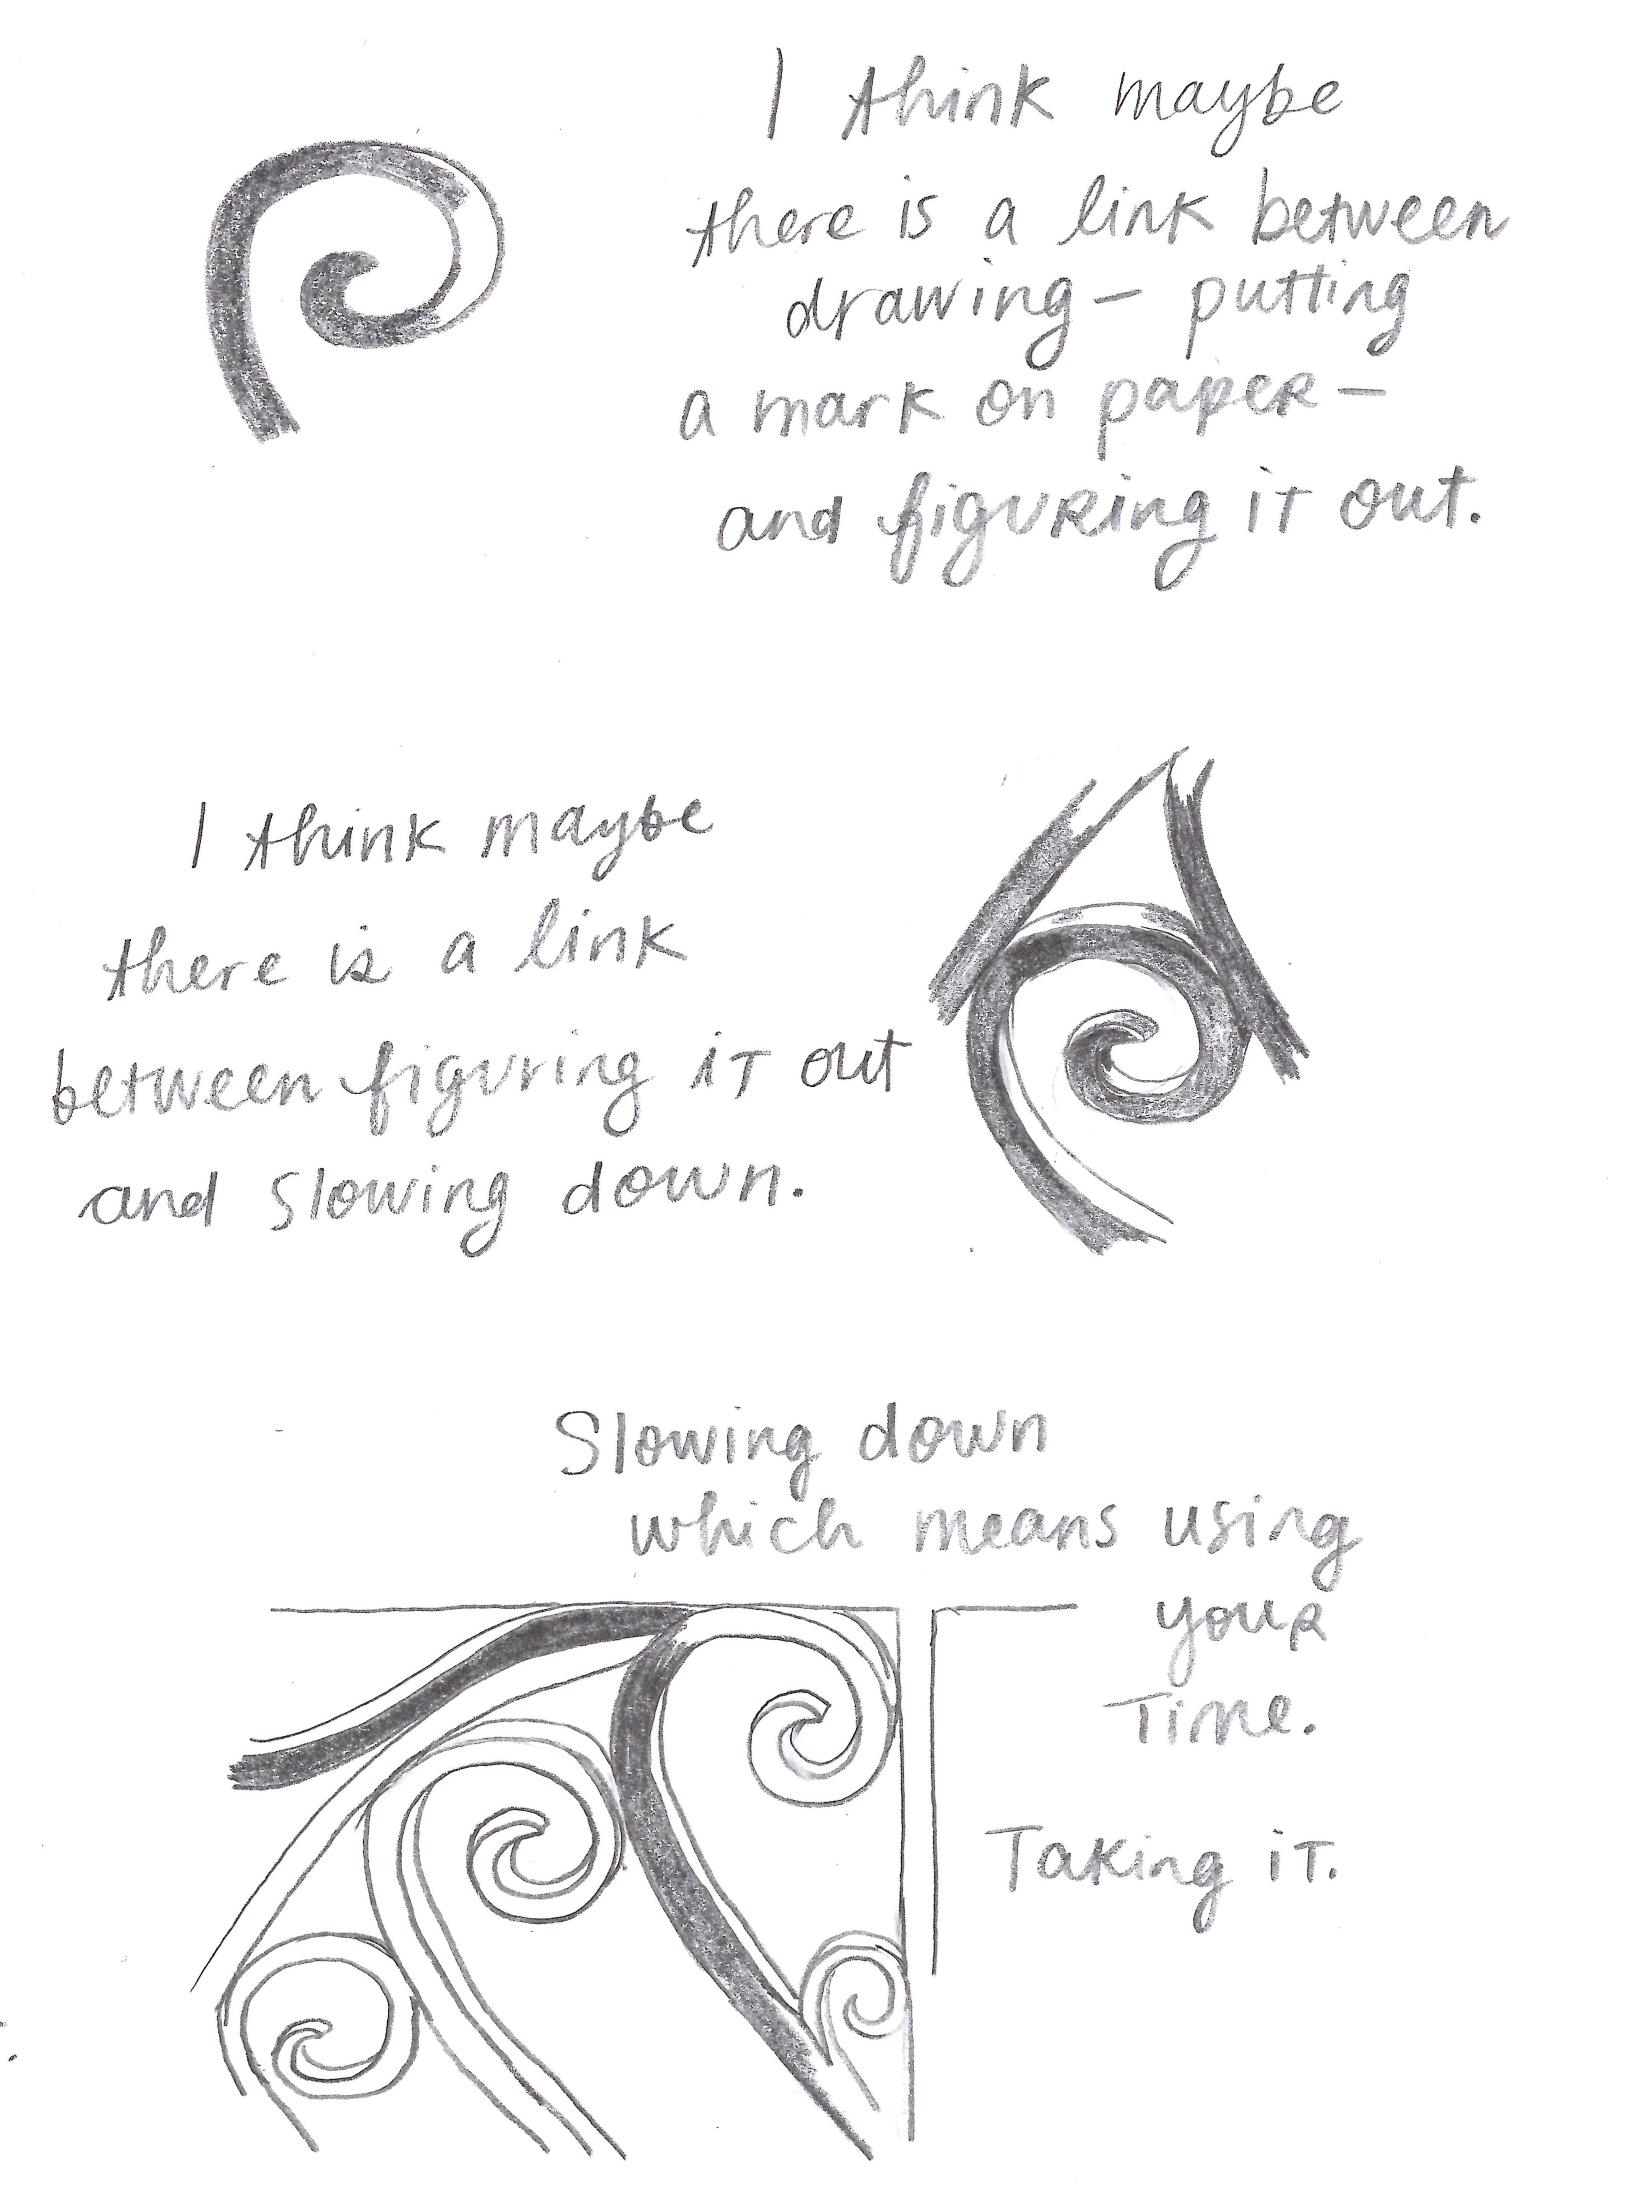 I think maybe
there is a link between
drawing — putting
a mark on paper —
and figuring it out.
I think maybe
there is a link
between figuring it out
and slowing down.
Slowing down
which means using
your
Time.
Taking it.